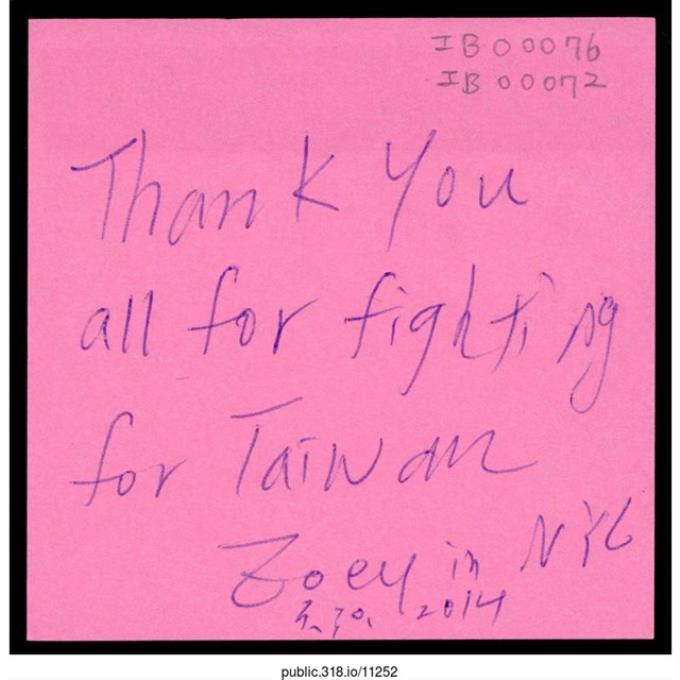 IB00076
IB00072
Thank You
all for fighting
for Taiwan
Zoey in NYC
3.30. 2014
public.318.io/11252